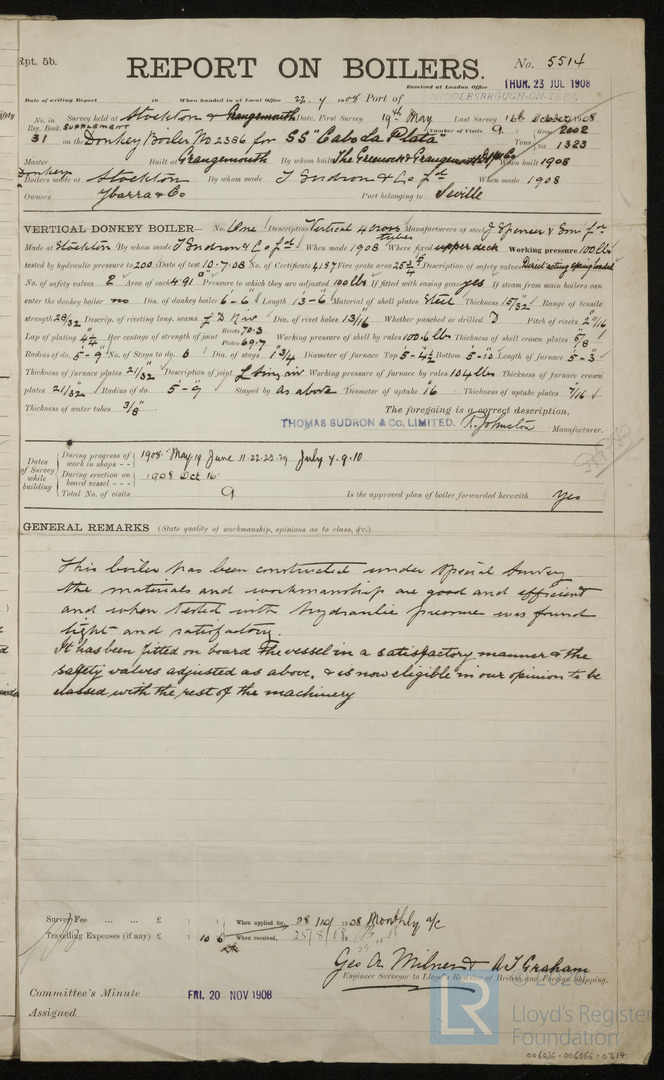 Rpt. 5b.
REPORT ON BOILERS.
No. 5514
Received at London Office THUR. 23 JUL 1908
Date of writing Report 19 When handed in at Local Office 22. 7 1908 Port of MIDDLESBROUGH-ON-TEES
No. in Reg. Book. Survey held at Stockton & Grangemouth Date, First Survey 19th May Last Survey 16th October 1908
SUPPLEMENT
31 on the Donkey Boiler No 2386 for SS "Cabo La Plata" (Number of Visits 9) Tons Gross 2002 Net 1323
Master Built at Grangemouth By whom built The Greenock & Grangemouth Dkyd Co When built 1908
Donkey Boilers made at Stockton By whom made T Sudron & Co Ld When made 1908
Owners Ybarra & Co Port belonging to Seville
VERTICAL DONKEY BOILER— No. One Description Vertical 4 cross tubes Manufacturers of steel J Spencer & Sons Ld
Made at Stockton By whom made T Sudron & Co Ld When made 1908 Where fixed upper deck Working pressure 100 lbs
tested by hydraulic pressure to 200 Date of test 10.7.08 No. of Certificate 4157 Fire grate area Description of safety valves Direct acting spring loaded
No. of safety valves 2 Area of each 4.91 Pressure to which they are adjusted 100 lbs If fitted with easing gear yes If steam from main boilers can
enter the donkey boiler no Dia. of donkey boiler 6-6" Length 13-6" Material of shell plates Steel Thickness 15/32" Range of tensile
strength 28/32 Descrip. of riveting long. seams L D Riv Dia. of rivet holes 13/16" Whether punched or drilled D Pitch of rivets 2 11/16
Lap of plating 4¼" Per centage of strength of joint Rivets 70.3 Plates 69.7 Working pressure of shell by rules 100.6 lbs Thickness of shell crown plates 5/8"
Radius of do. 5-9" No. of Stays to do. 6 Dia. of stays 1¾" Diameter of furnace Top 5-4½" Bottom 5-10" Length of furnace 5-3"
Thickness of furnace plates 21/32" Description of joint L Sing riv Working pressure of furnace by rules 104 lbs Thickness of furnace crown
plates 21/32" Radius of do. 5'-9" Stayed by as above Diameter of uptake 16" Thickness of uptake plates 7/16"
Thickness of water tubes 3/8"
The foregoing is a correct description,
THOMAS SUDRON & Co. LIMITED. T. Johnston Manufacturer.
Dates of Survey while building
During progress of work in shops - - 1908. May. 19 June 11. 22. 23. 29 July 7. 9. 10
During erection on board vessel - - - 1908 Oct 16
Total No. of visits 9 Is the approved plan of boiler forwarded herewith Yes
GENERAL REMARKS (State quality of workmanship, opinions as to class, &c.)
This boiler has been constructed under Special Survey
the materials and workmanship are good and efficient
and when tested with hydraulic pressure was found
tight and satisfactory.
It has been fitted on board the vessel in a satisfactory manner & the
safety valves adjusted as above, & is now eligible in our opinion to be
classed with the rest of the machinery
Survey Fee ... ... £ : : When applied for, 28/10/1908 Monthly a/c
Travelling Expenses (if any) £ : 10 6 When received,
Geo A. Milner & A T Graham
Engineer Surveyor to Lloyd's Register of British and Foreign Shipping.
Committee's Minute FRI. 20 NOV 1908
Assigned
LR
Lloyd's Register
Foundation
006056-006066-0214